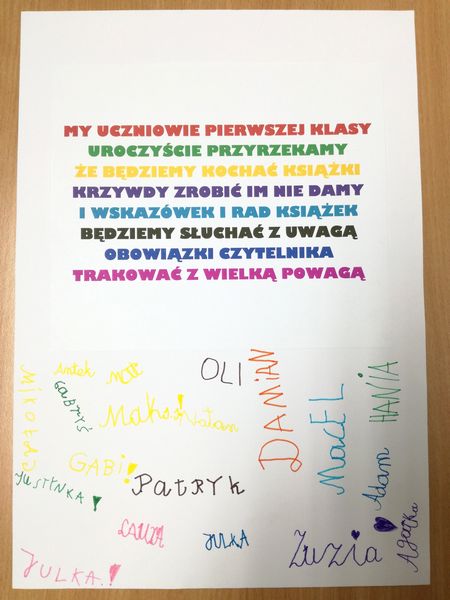 MY UCZNIOWIE PIERWSZEJ KLASY
UROCZYŚCIE PRZYRZEKAMY
ŻE BĘDZIEMY KOCHAĆ KSIĄŻKI
KRZYWDY ZROBIĆ IM NIE DAMY
I WSKAZÓWEK I RAD KSIĄŻEK
BĘDZIEMY SŁUCHAĆ Z UWAGĄ
OBOWIĄZKI CZYTELNIKA
TRAKOWAĆ Z WIELKĄ POWAGĄ
Antek
OLI
DAMIAN
HANIA
GABRYŚ
Natan
MaCEL
GABi!
JUSTYNKA!
PatRYk
Adam
JULKA
Zuzia
Agatka
JULKA!